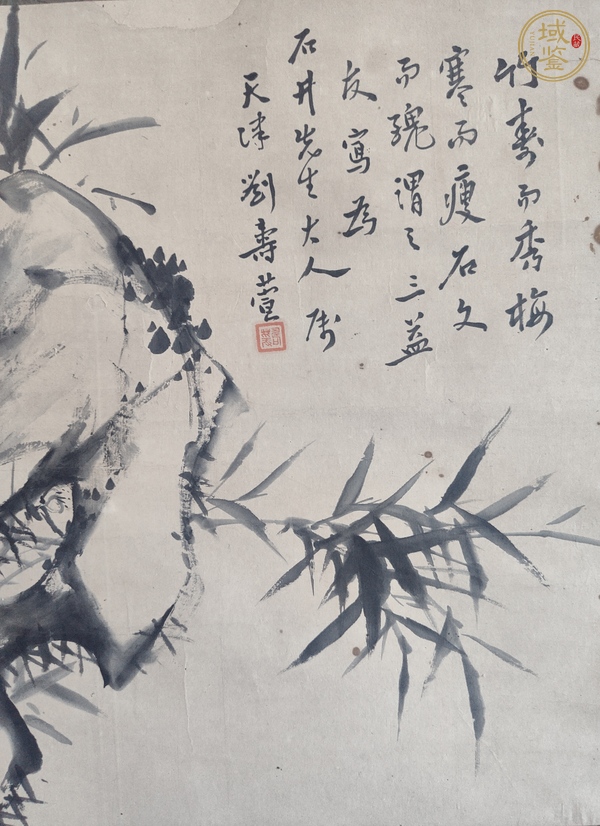 竹壽而秀梅
寒而瘦石文
而醜謂之三益
友寫為
石井先生大人属
天津劉壽萱
域鉴